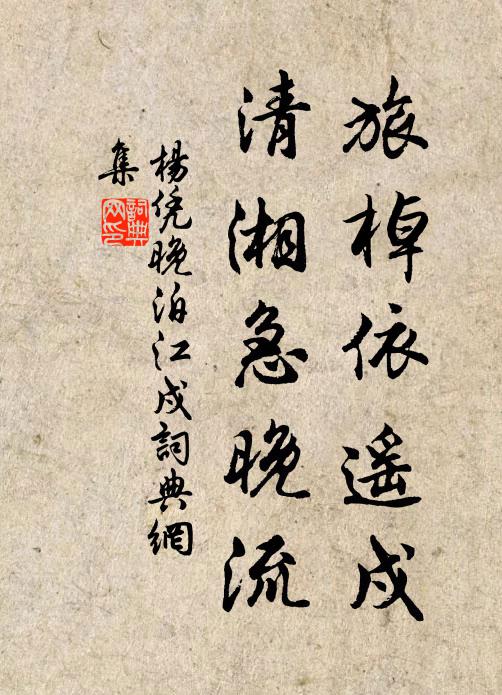 旅棹依遥戍
清湘急晚流
楊凭晚泊江戍詞典網
集
詞典
网印